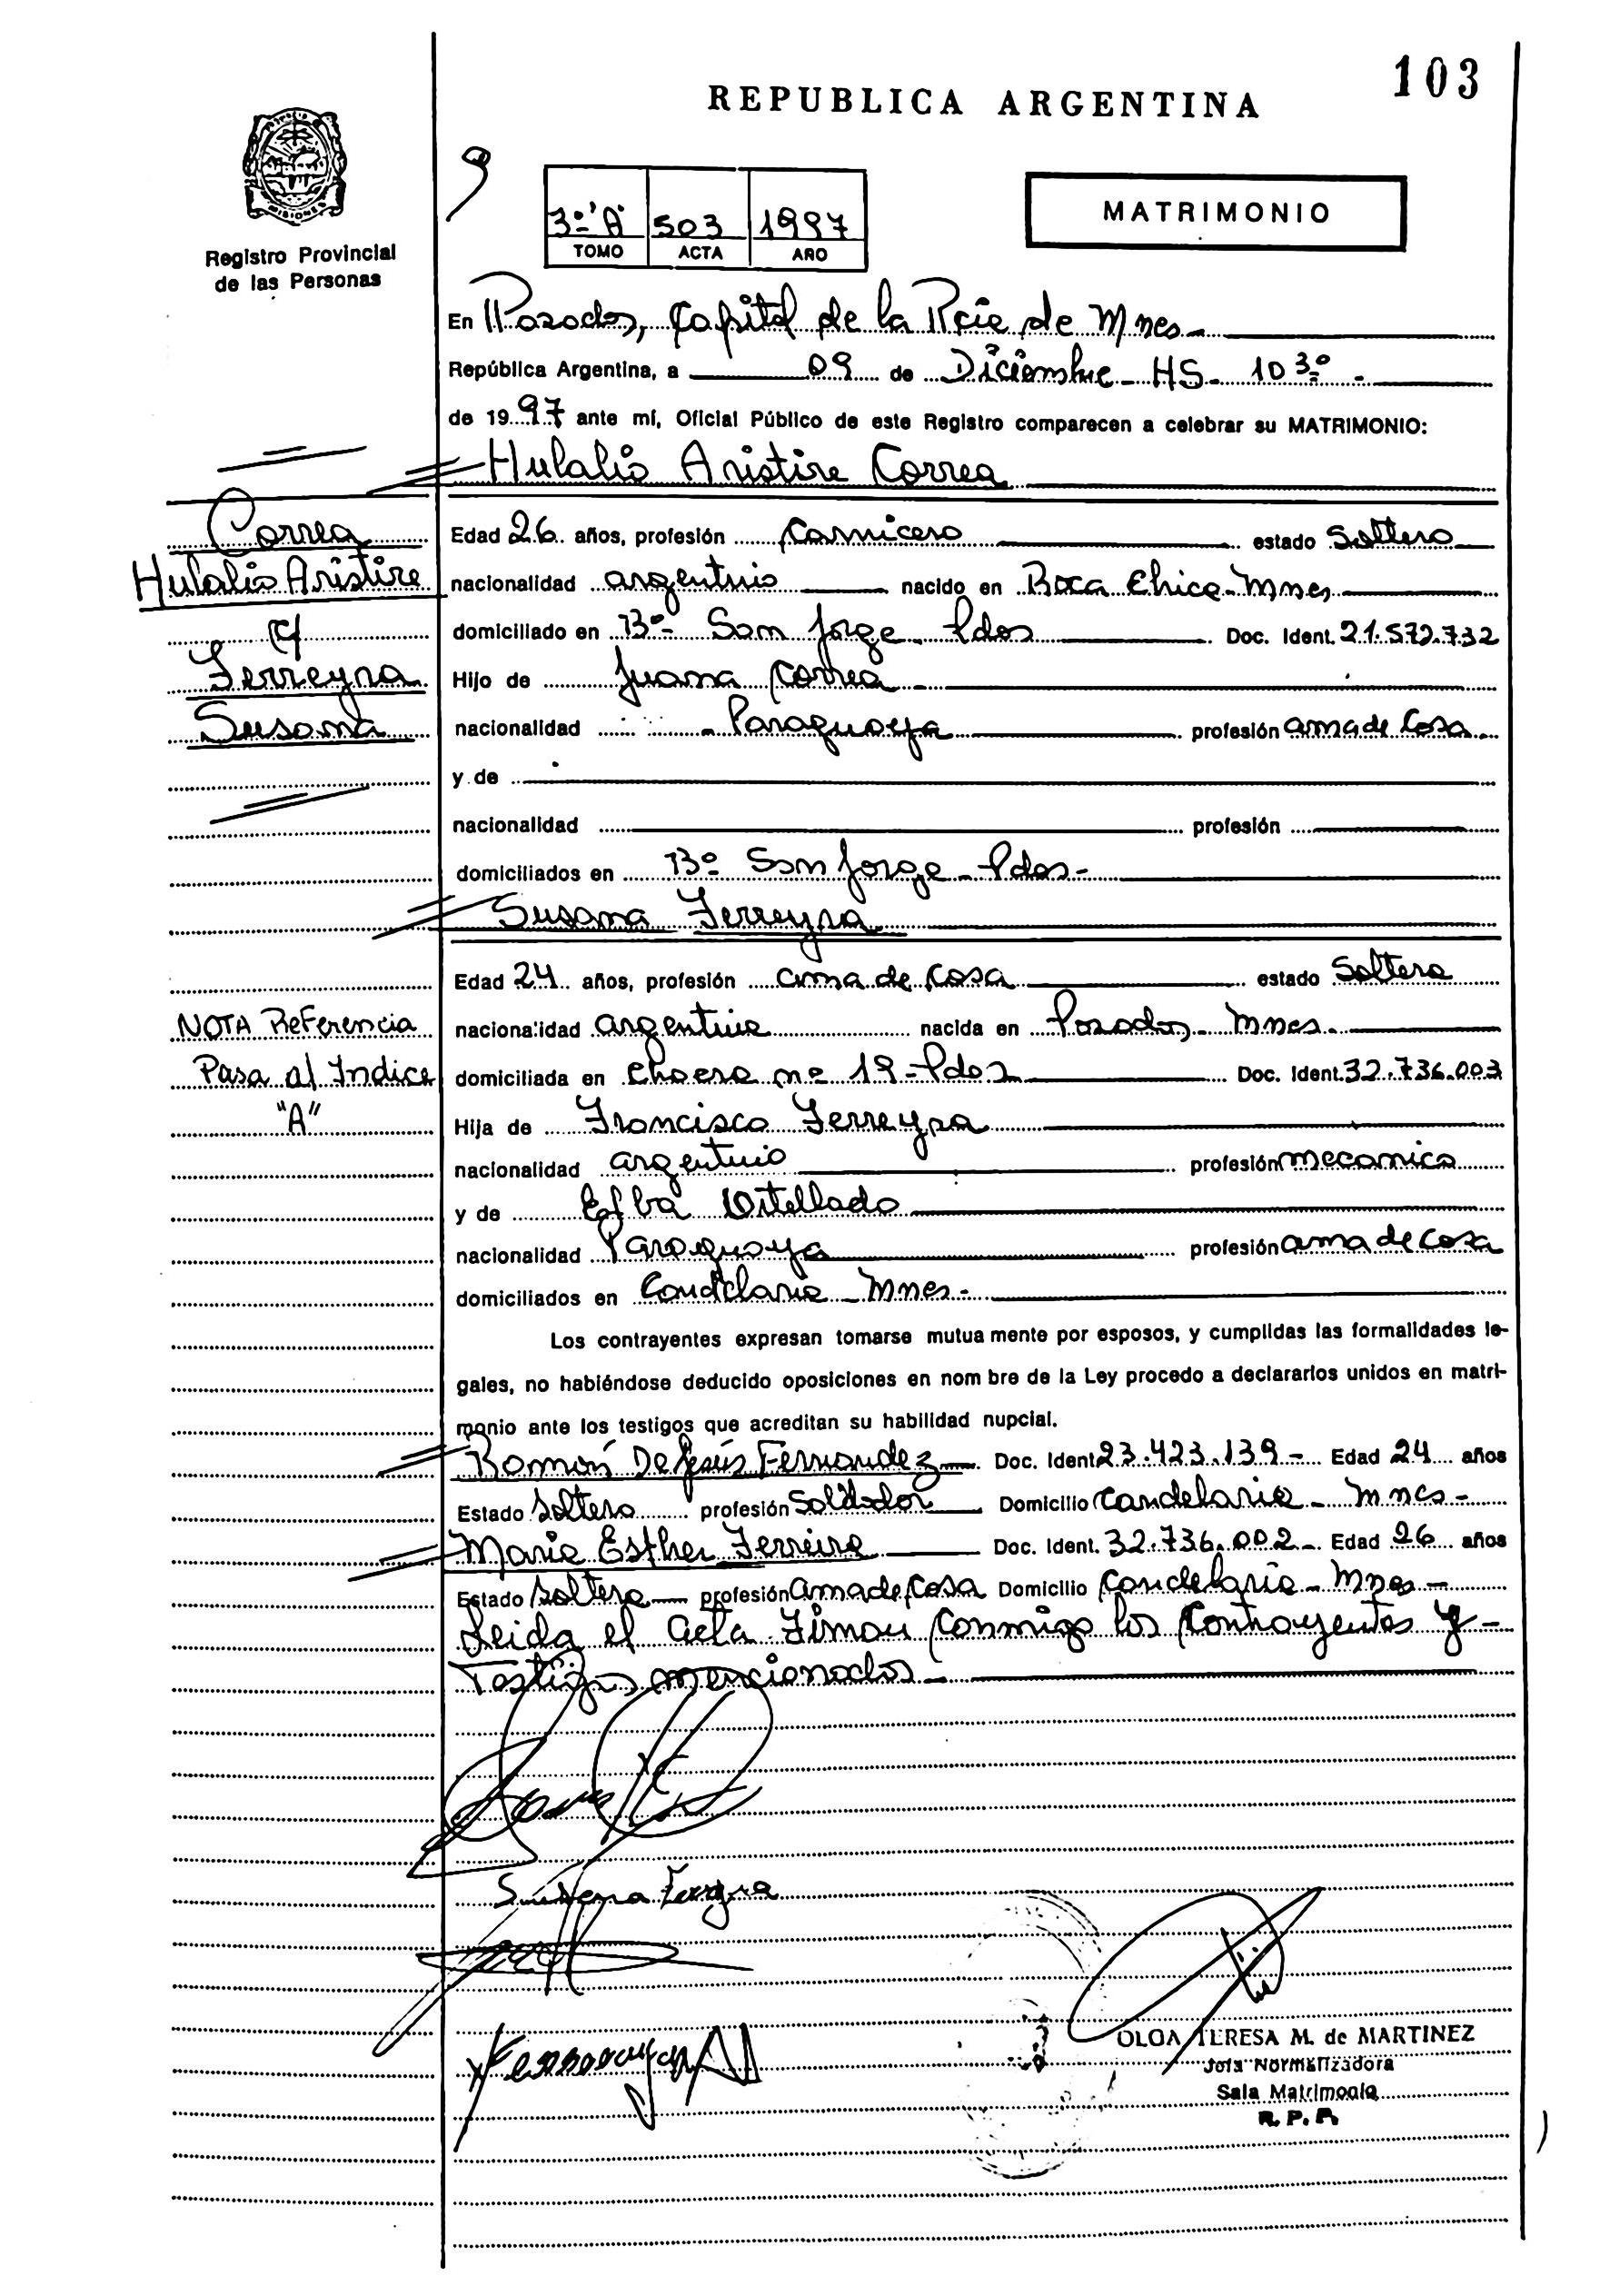 103
REPUBLICA ARGENTINA
MISIONES
Registro Provincial
de las Personas
9
3º "A" 503 1997
TOMO ACTA AÑO
MATRIMONIO
En Posadas, Capital de la Pcia de Mnes
República Argentina, a 09 de Diciembre - HS - 10 3º -
de 1997 ante mí, Oficial Público de este Registro comparecen a celebrar su MATRIMONIO:
Hulalio Aristire Correa
Correa
Hulalio Aristire
c/
Ferreyra
Susana
Edad 26 años, profesión Carnicero estado Soltero
nacionalidad argentino nacido en Boca Chica - Mnes
domiciliado en Bº San Jorge - Pdas Doc. Ident. 21.572.732
Hijo de Juana Correa
nacionalidad Paraguaya profesión ama de Casa
y de
nacionalidad profesión
domiciliados en Bº San Jorge - Pdas -
Susana Ferreyra
Edad 24 años, profesión ama de casa estado Soltera
nacionalidad argentina nacida en Posadas - Mnes -
domiciliada en 19 - Pdas Doc. Ident. 32.736.003
NOTA Referencia
Pasa al Indice
"A"
Hija de Francisco Ferreyra
nacionalidad argentino profesión mecanico
y de Elba
nacionalidad Paraguaya profesión ama de casa
domiciliados en Candelaria - Mnes -
Los contrayentes expresan tomarse mutuamente por esposos, y cumplidas las formalidades le-
gales, no habiéndose deducido oposiciones en nombre de la Ley procedo a declararlos unidos en matri-
monio ante los testigos que acreditan su habilidad nupcial.
Ramón De Jesús Fernandez Doc. Ident 23.423.139 - Edad 24 años
Estado Soltero profesión Soldador Domicilio Candelaria - Mnes -
Maria Esther Ferreira Doc. Ident. 32.736.002 - Edad 26 años
Estado Soltera profesión ama de Casa Domicilio Candelaria - Mnes -
Leida el acta Firman Conmigo los Contrayentes y -
Testigos mencionados
Susana Ferreyra
OLGA TERESA M. de MARTINEZ
Jefa Normalizadora
Sala Matrimonio
R. P. P.